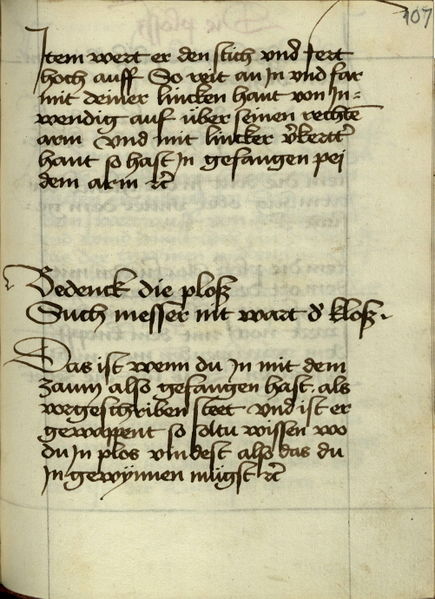 107
Item wert er den stich vnd fert
hoch auff So reit an In vnd far
mit deiner lincken hant von In=
wendig auf über seinen rechten
arm vnd mit lincker v̉kertt̉
hant so hast In gefangen pei
dem arm ꝛc̃
Bedenck die ploß
Such messer nit wart d̉ kloß.
Das ist wenn du In mit dem
zaum also gefangen hast. als
vorgeschriben steet vnd ist er
gewappent so soltu wissen wo
du In plos vindest also das du
In gewÿnnen mügst ꝛc̃